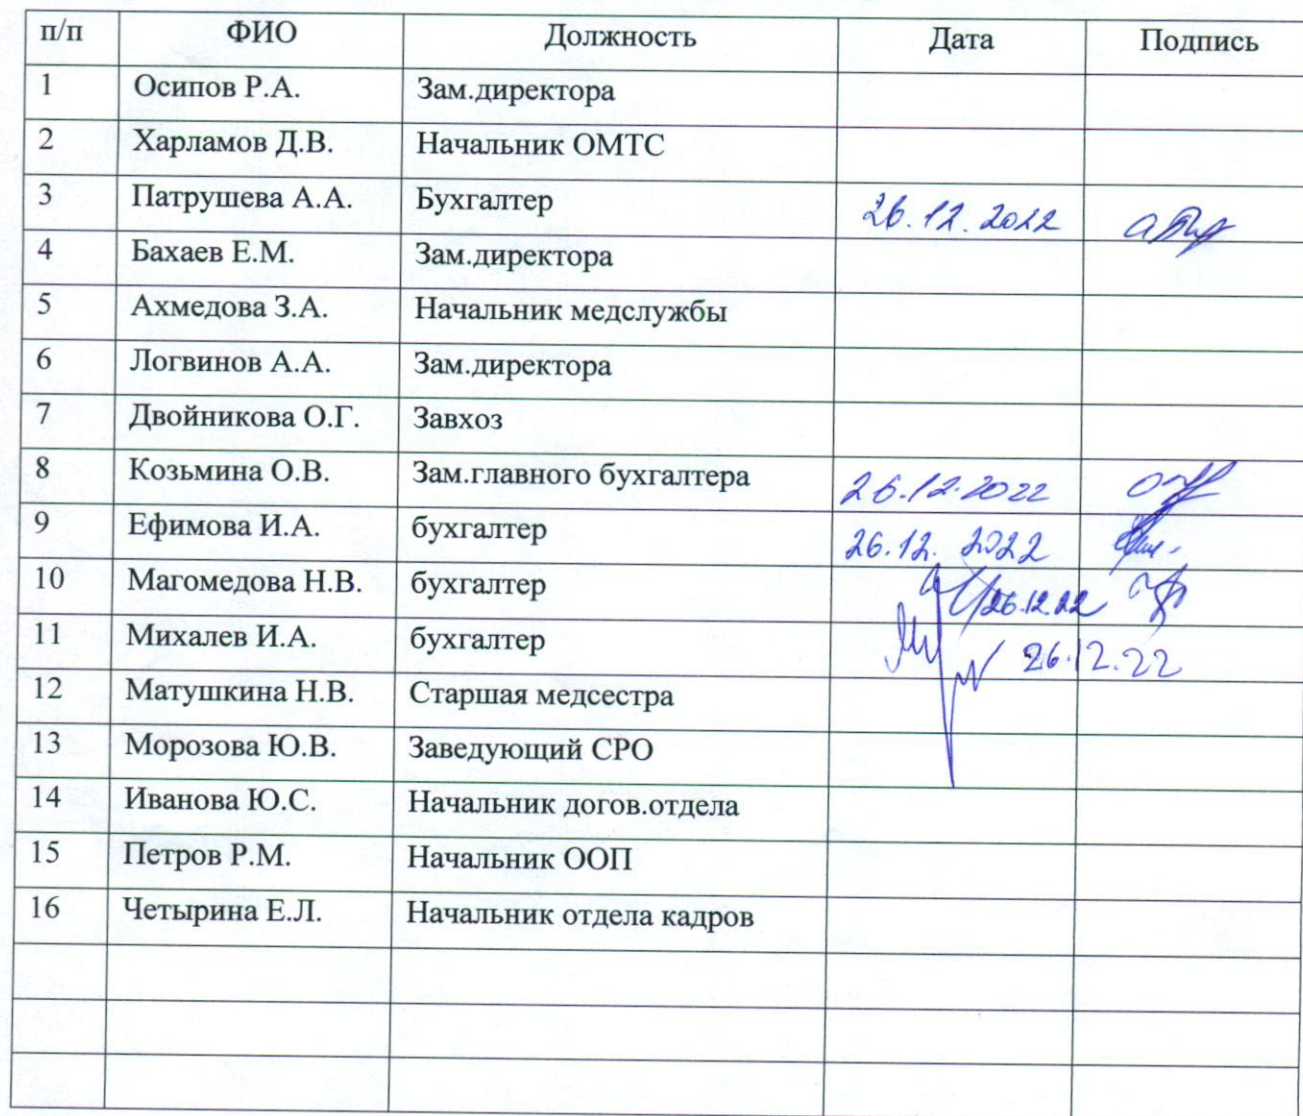 п/п ФИО Должность Дата Подпись
1 Осипов Р.А. Зам.директора
2 Харламов Д.В. Начальник ОМТС
3 Патрушева А.А. Бухгалтер 26.12.2022
4 Бахаев Е.М. Зам.директора
5 Ахмедова З.А. Начальник медслужбы
6 Логвинов А.А. Зам.директора
7 Двойникова О.Г. Завхоз
8 Козьмина О.В. Зам.главного бухгалтера 26.12.2022
9 Ефимова И.А. бухгалтер 26.12.2022
10 Магомедова Н.В. бухгалтер 26.12.22
11 Михалев И.А. бухгалтер 26.12.22
12 Матушкина Н.В. Старшая медсестра
13 Морозова Ю.В. Заведующий СРО
14 Иванова Ю.С. Начальник догов.отдела
15 Петров Р.М. Начальник ООП
16 Четырина Е.Л. Начальник отдела кадров